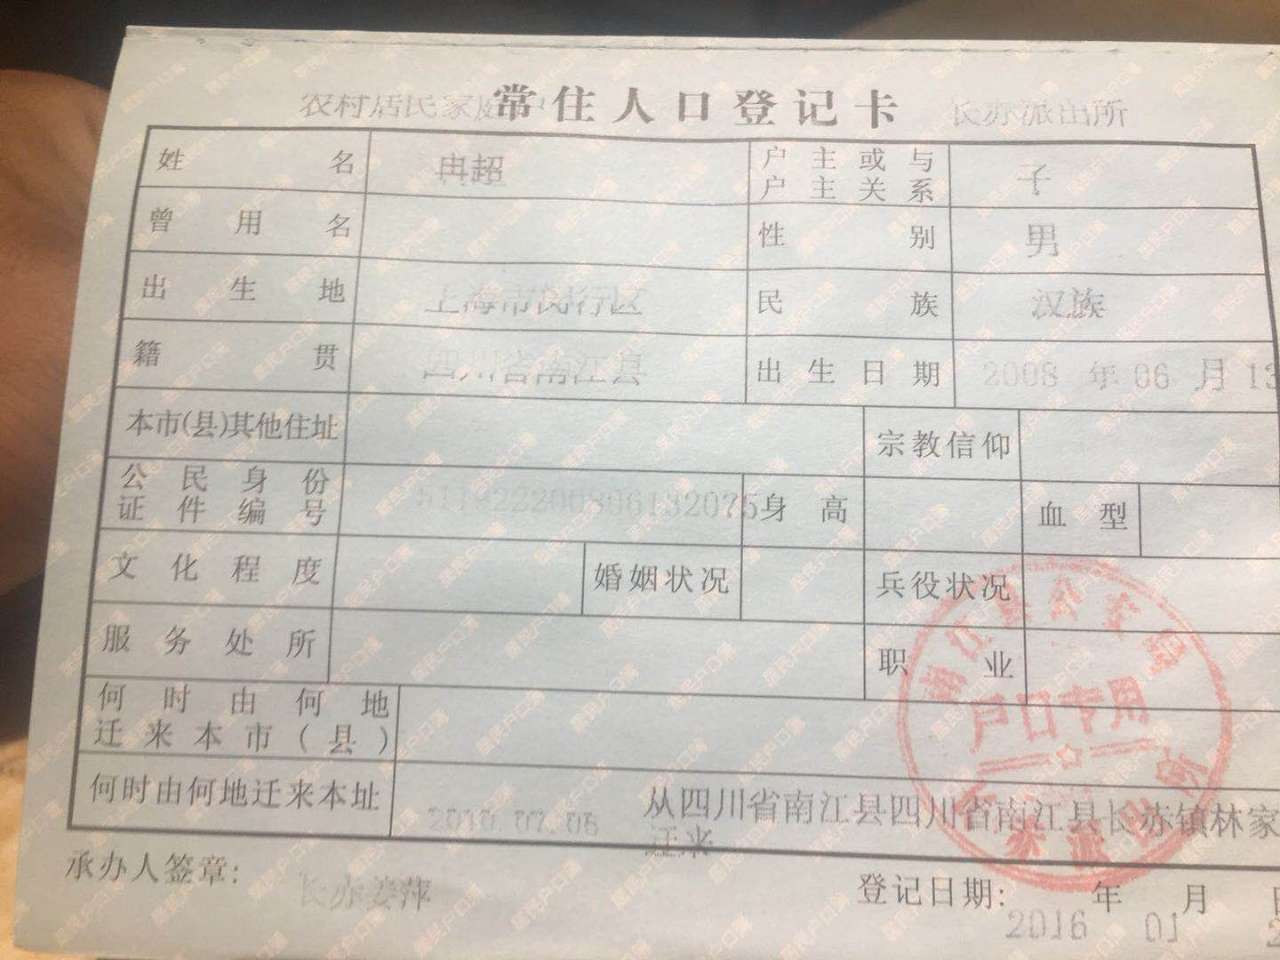 农村居民家庭户 常住人口登记卡 长赤派出所
姓名 冉超 户主或与户主关系 子
曾用名 性别 男
出生地 上海市闵行区 民族 汉族
籍贯 四川省南江县 出生日期 2008 年 06 月 13
本市(县)其他住址 宗教信仰
公民身份证件编号 511922200806132075 身高 血型
文化程度 婚姻状况 兵役状况
服务处所 职业
何时由何地迁来本市(县)
户口专用
何时由何地迁来本址 2010.07.06 从四川省南江县四川省南江县长赤镇林家
迁来
承办人签章: 长赤姜萍 登记日期: 2016 年 01 月